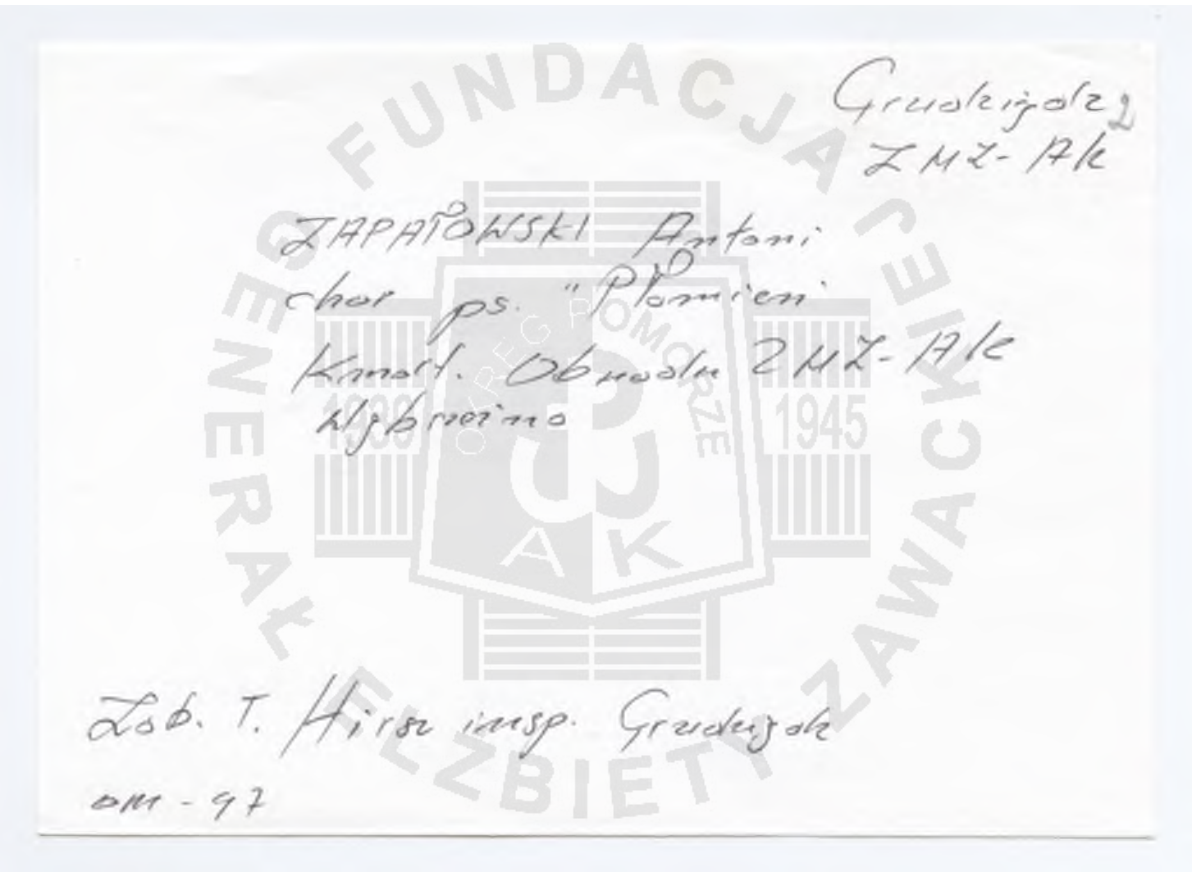 Grudziądz 2
ZWZ-AK
ZAPAŁOWSKI Antoni
chor ps. "Płomień
Kmdt. Obwodu ZWZ-AK
Wybrzeżno
Zob. T. Hirsz insp. Grudziądz
OM-97
FUNDACJA GENERAŁ ELŻBIETY ZAWACKIEJ
OKRĘG POMORZE
1939 1945
AK